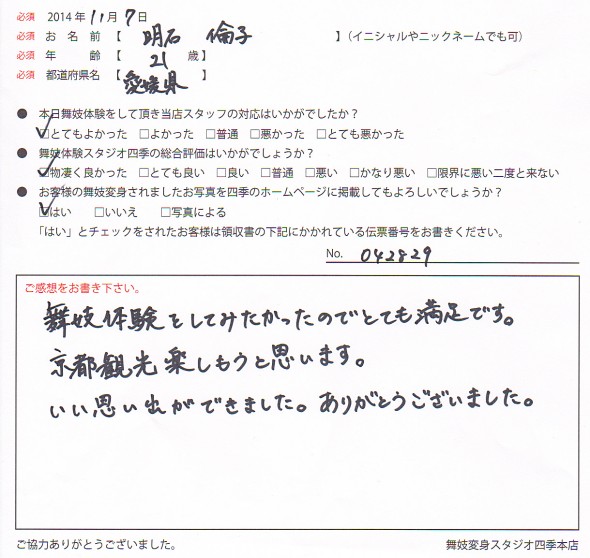 必須 2014年 11月 7日
必須 お 名 前 【 明石 倫子 】（イニシャルやニックネームでも可）
必須 年 齢 【 21 歳】
必須 都道府県名 【 愛媛県 】
● 本日舞妓体験をして頂き当店スタッフの対応はいかがでしたか？
☑とてもよかった □よかった □普通 □悪かった □とても悪かった
● 舞妓体験スタジオ四季の総合評価はいかがでしょうか？
☑物凄く良かった □とても良い □良い □普通 □悪い □かなり悪い □限界に悪い二度と来ない
● お客様の舞妓変身されましたお写真を四季のホームページに掲載してもよろしいでしょうか？
☑はい □いいえ □写真による
「はい」とチェックをされたお客様は領収書の下記にかかれている伝票番号をお書きください。
No. 042829
ご感想をお書き下さい。
舞妓体験をしてみたかったのでとても満足です。
京都観光楽しもうと思います。
いい思い出ができました。ありがとうございました。
ご協力ありがとうございました。 舞妓変身スタジオ四季本店